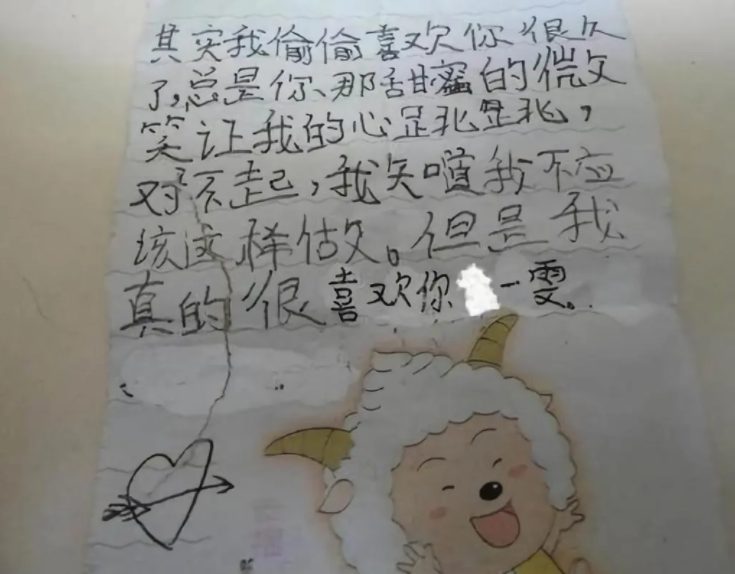 其实我偷偷喜欢你很久
了,总是你那甜蜜的微
笑让我的心是非是非,
对不起,我矢噵我不应
该这样做。但是我
真的很喜欢你 一雯。